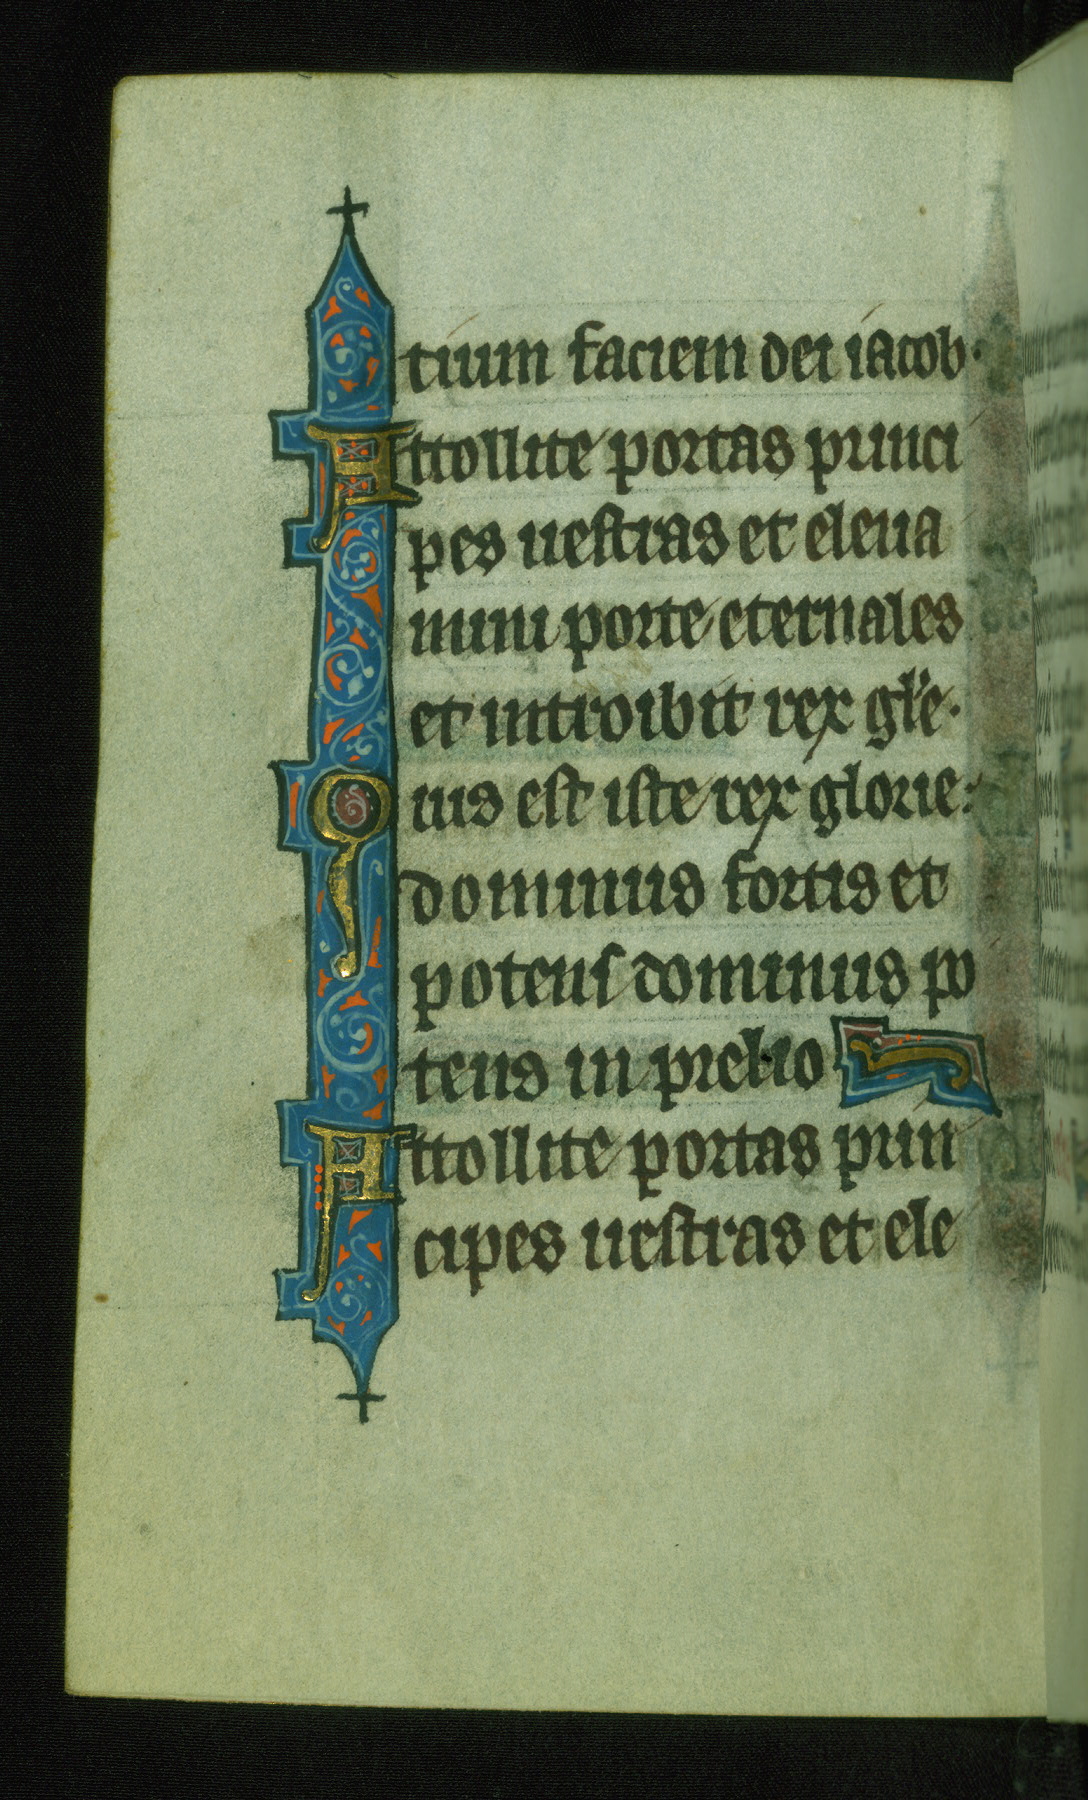 tium faciem dei iacob·
Attollite portas princi
pes uestras et eleua
mini porte eternales
et introibit rex gl'e·
Qius est iste rex glorie:
dominus fortis et
potens dominus po
tens in prelio
Attollite portas prin
cipes uestras et ele